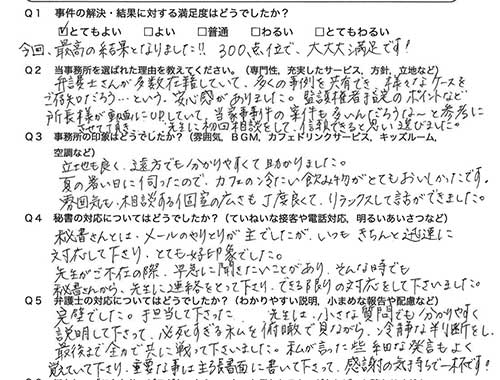 Q1 事件の解決・結果に対する満足度はどうでしたか?
☑とてもよい □よい □普通 □わるい □とてもわるい
今回、最高の結果となりました!! 300点位で、大大大満足です!
Q2 当事務所を選ばれた理由を教えてください。(専門性、充実したサービス、方針、立地など)
弁護士さんが多数在籍していて、多くの事例を共有でき、様々なケースを
ご存知だろう…という、安心感がありました。監護権者指定のポイントなど
所長様が動画にUPしていて、当家事事件の案件も多いんだろうな〜と参考に
させて頂き、先生に初回相談をして、信頼できると思い選びました。
Q3 事務所の印象はどうでしたか?(雰囲気、BGM、カフェドリンクサービス、キッズルーム、
空調など)
立地も良く、遠方でも分かりやすくて助かりました。
夏の暑い日に伺ったので、カフェの冷たい飲み物がとてもおいしかったです。
雰囲気も、相談する個室の広さも丁度良くて、リラックスして話ができました。
Q4 秘書の対応についてはどうでしたか?(ていねいな接客や電話対応、明るいあいさつなど)
秘書さんとは、メールのやりとりが主でしたが、いつもきちんと迅速に
対応して下さり、とても好印象でした。
先生がご不在の際、早急に聞きたいことがあり、そんな時でも
秘書さんから、先生に連絡をとって下さり、できる限りの対応をして下さいました。
Q5 弁護士の対応についてはどうでしたか?(わかりやすい説明、小まめな報告や配慮など)
完璧でした。担当して下さった 先生は、小さな質問でも分かりやすく
説明して下さって、必死すぎる私を俯瞰で見ながら、冷静な判断をし、
最後まで全力で共に戦って下さいました。私が言った些細な発言もよく
覚えていて下さり、重要な事は主張書面に書いて下さって、感謝の気持ちで一杯です!